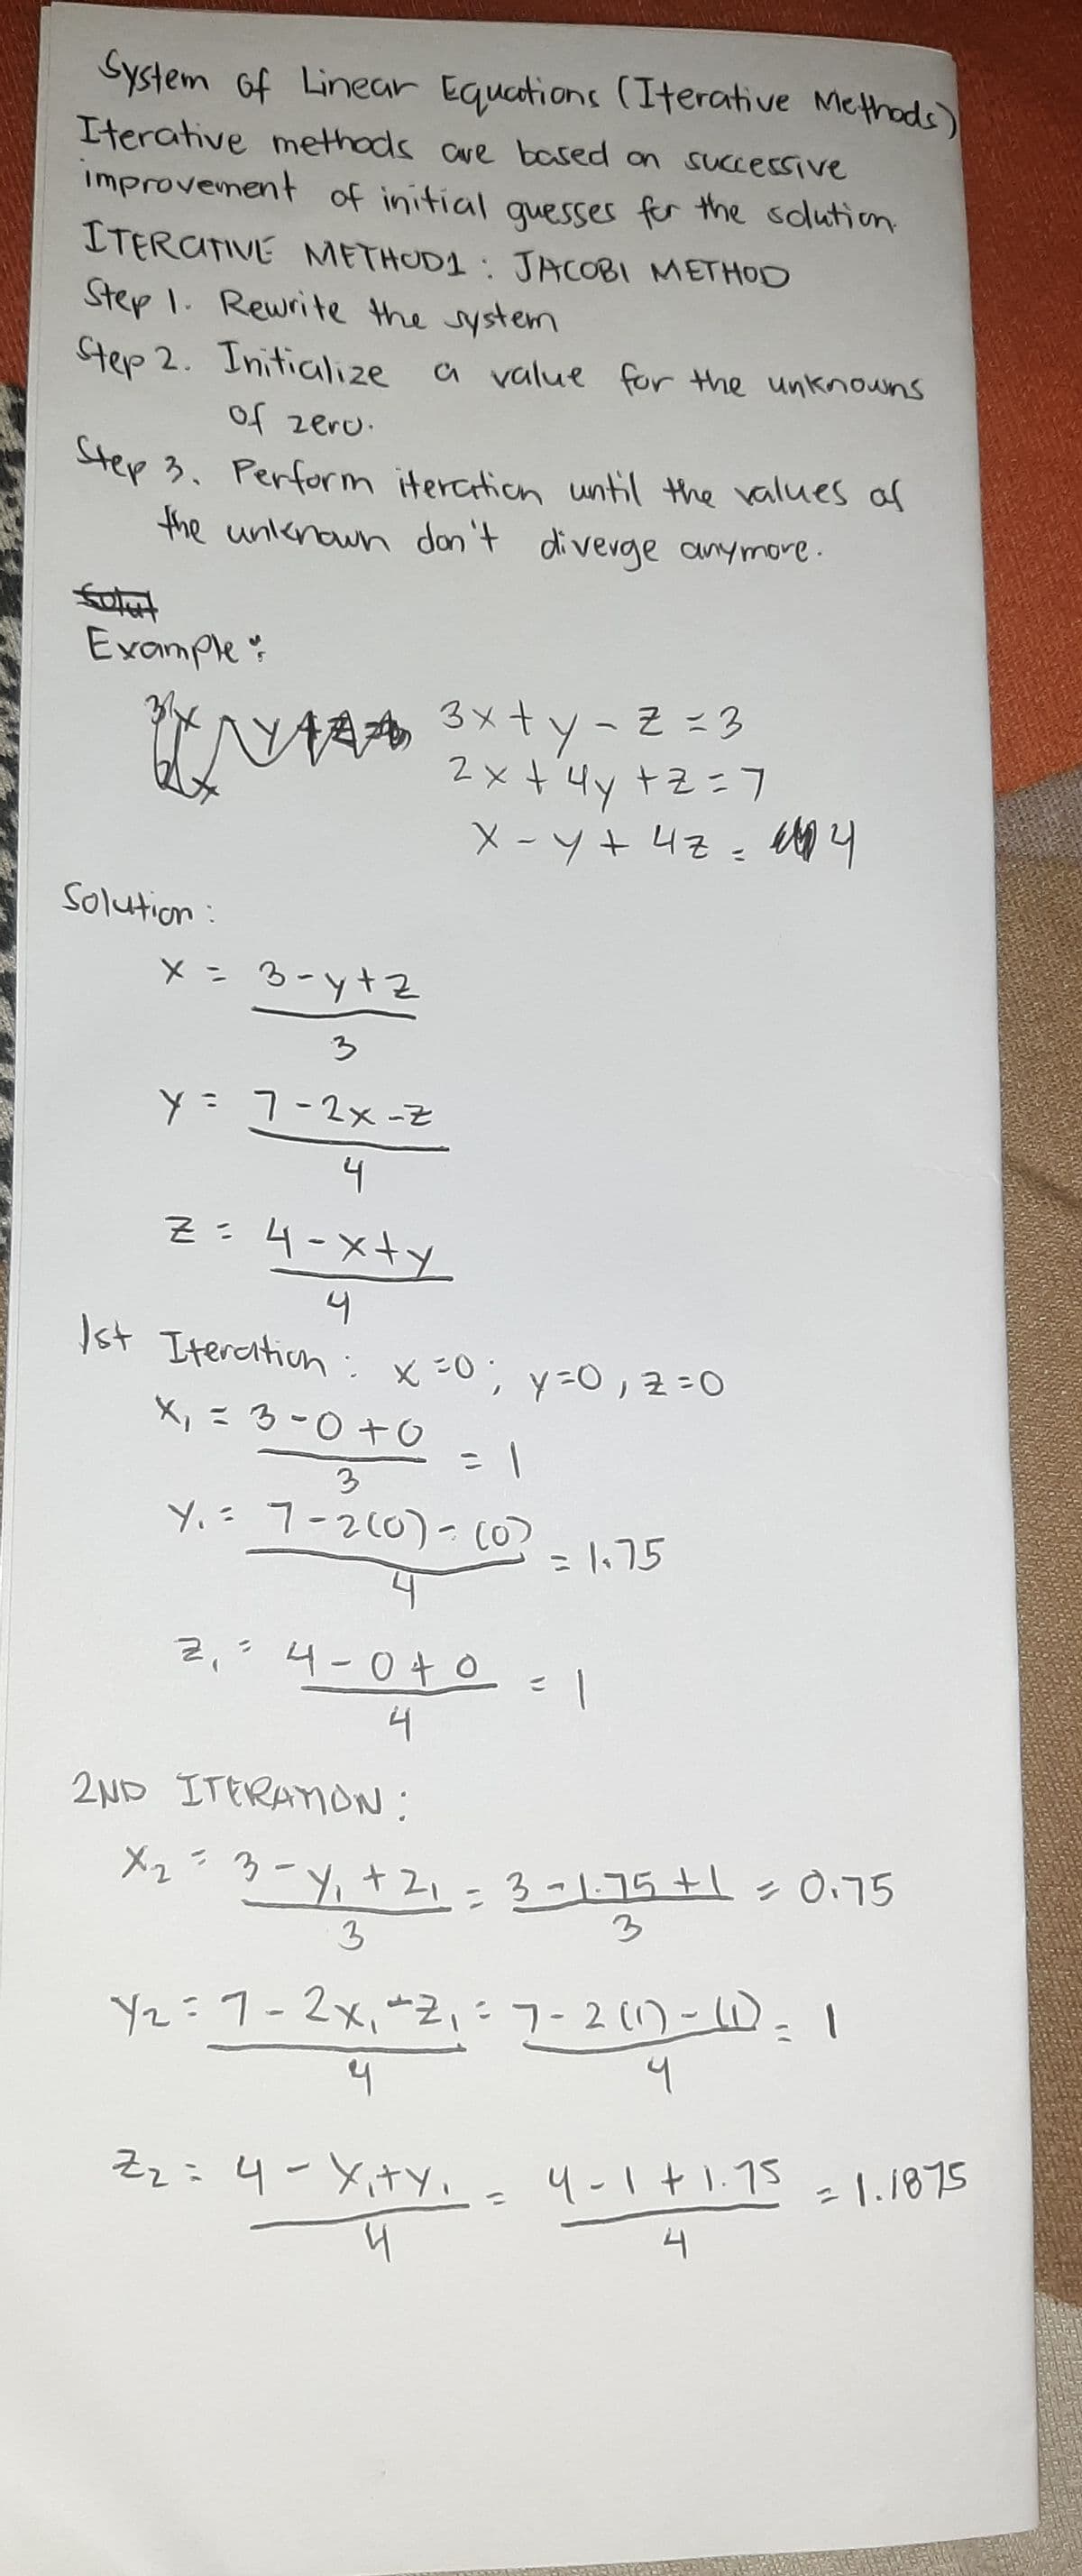 System of Linear Equations (Iterative Methods)
Iterative methods are based on successive
improvement of initial guesses for the solution.
ITERATIVE METHOD1: JACOBI METHOD
Step 1. Rewrite the system
Step 2. Initialize a value for the unknowns
of zero.
Step 3. Perform iteration until the values of
the unknown don't diverge anymore.
Example:
3x + y - z = 3
2x + 4y + z = 7
x - y + 4z = 4
Solution:
x = 3 - y + z
3
y = 7 - 2x - z
4
z = 4 - x + y
4
1st Iteration: x = 0; y = 0, z = 0
x₁ = 3 - 0 + 0 = 1
3
y₁ = 7 - 2(0) - (0) = 1.75
4
z₁ = 4 - 0 + 0 = 1
4
2ND ITERATION:
x₂ = 3 - y₁ + z₁ = 3 - 1.75 + 1 = 0.75
3 3
y₂ = 7 - 2x₁ - z₁ = 7 - 2(1) - (1) = 1
4 4
z₂ = 4 - x₁ + y₁ = 4 - 1 + 1.75 = 1.1875
4 4